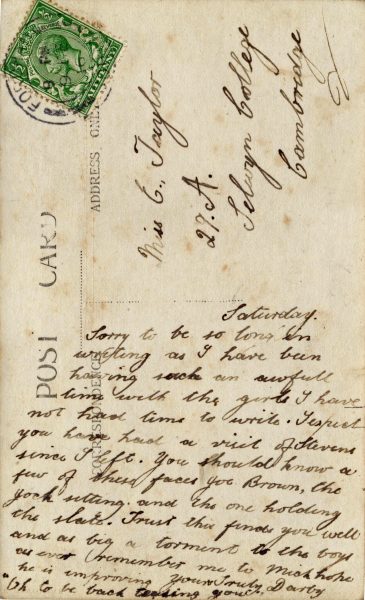 POST CARD
CORRESPONDENCE
ADDRESS ONLY
Miss E. Taylor
27. A.
Selwyn College
Cambridge
Saturday.
Sorry to be so long in
writing as I have been
having such an awfull
time with the girls I have
not had time to write. I expect
you have had a visit of Stevens
since I left. You should know a
few of these faces Joe Brown, the
jock sitting. and the one holding
the slate. Trust this finds you well
and as big a torment to the boys
as ever remember me to Mick hope
he is improving Yours Truly Darby
to be back teasing you.